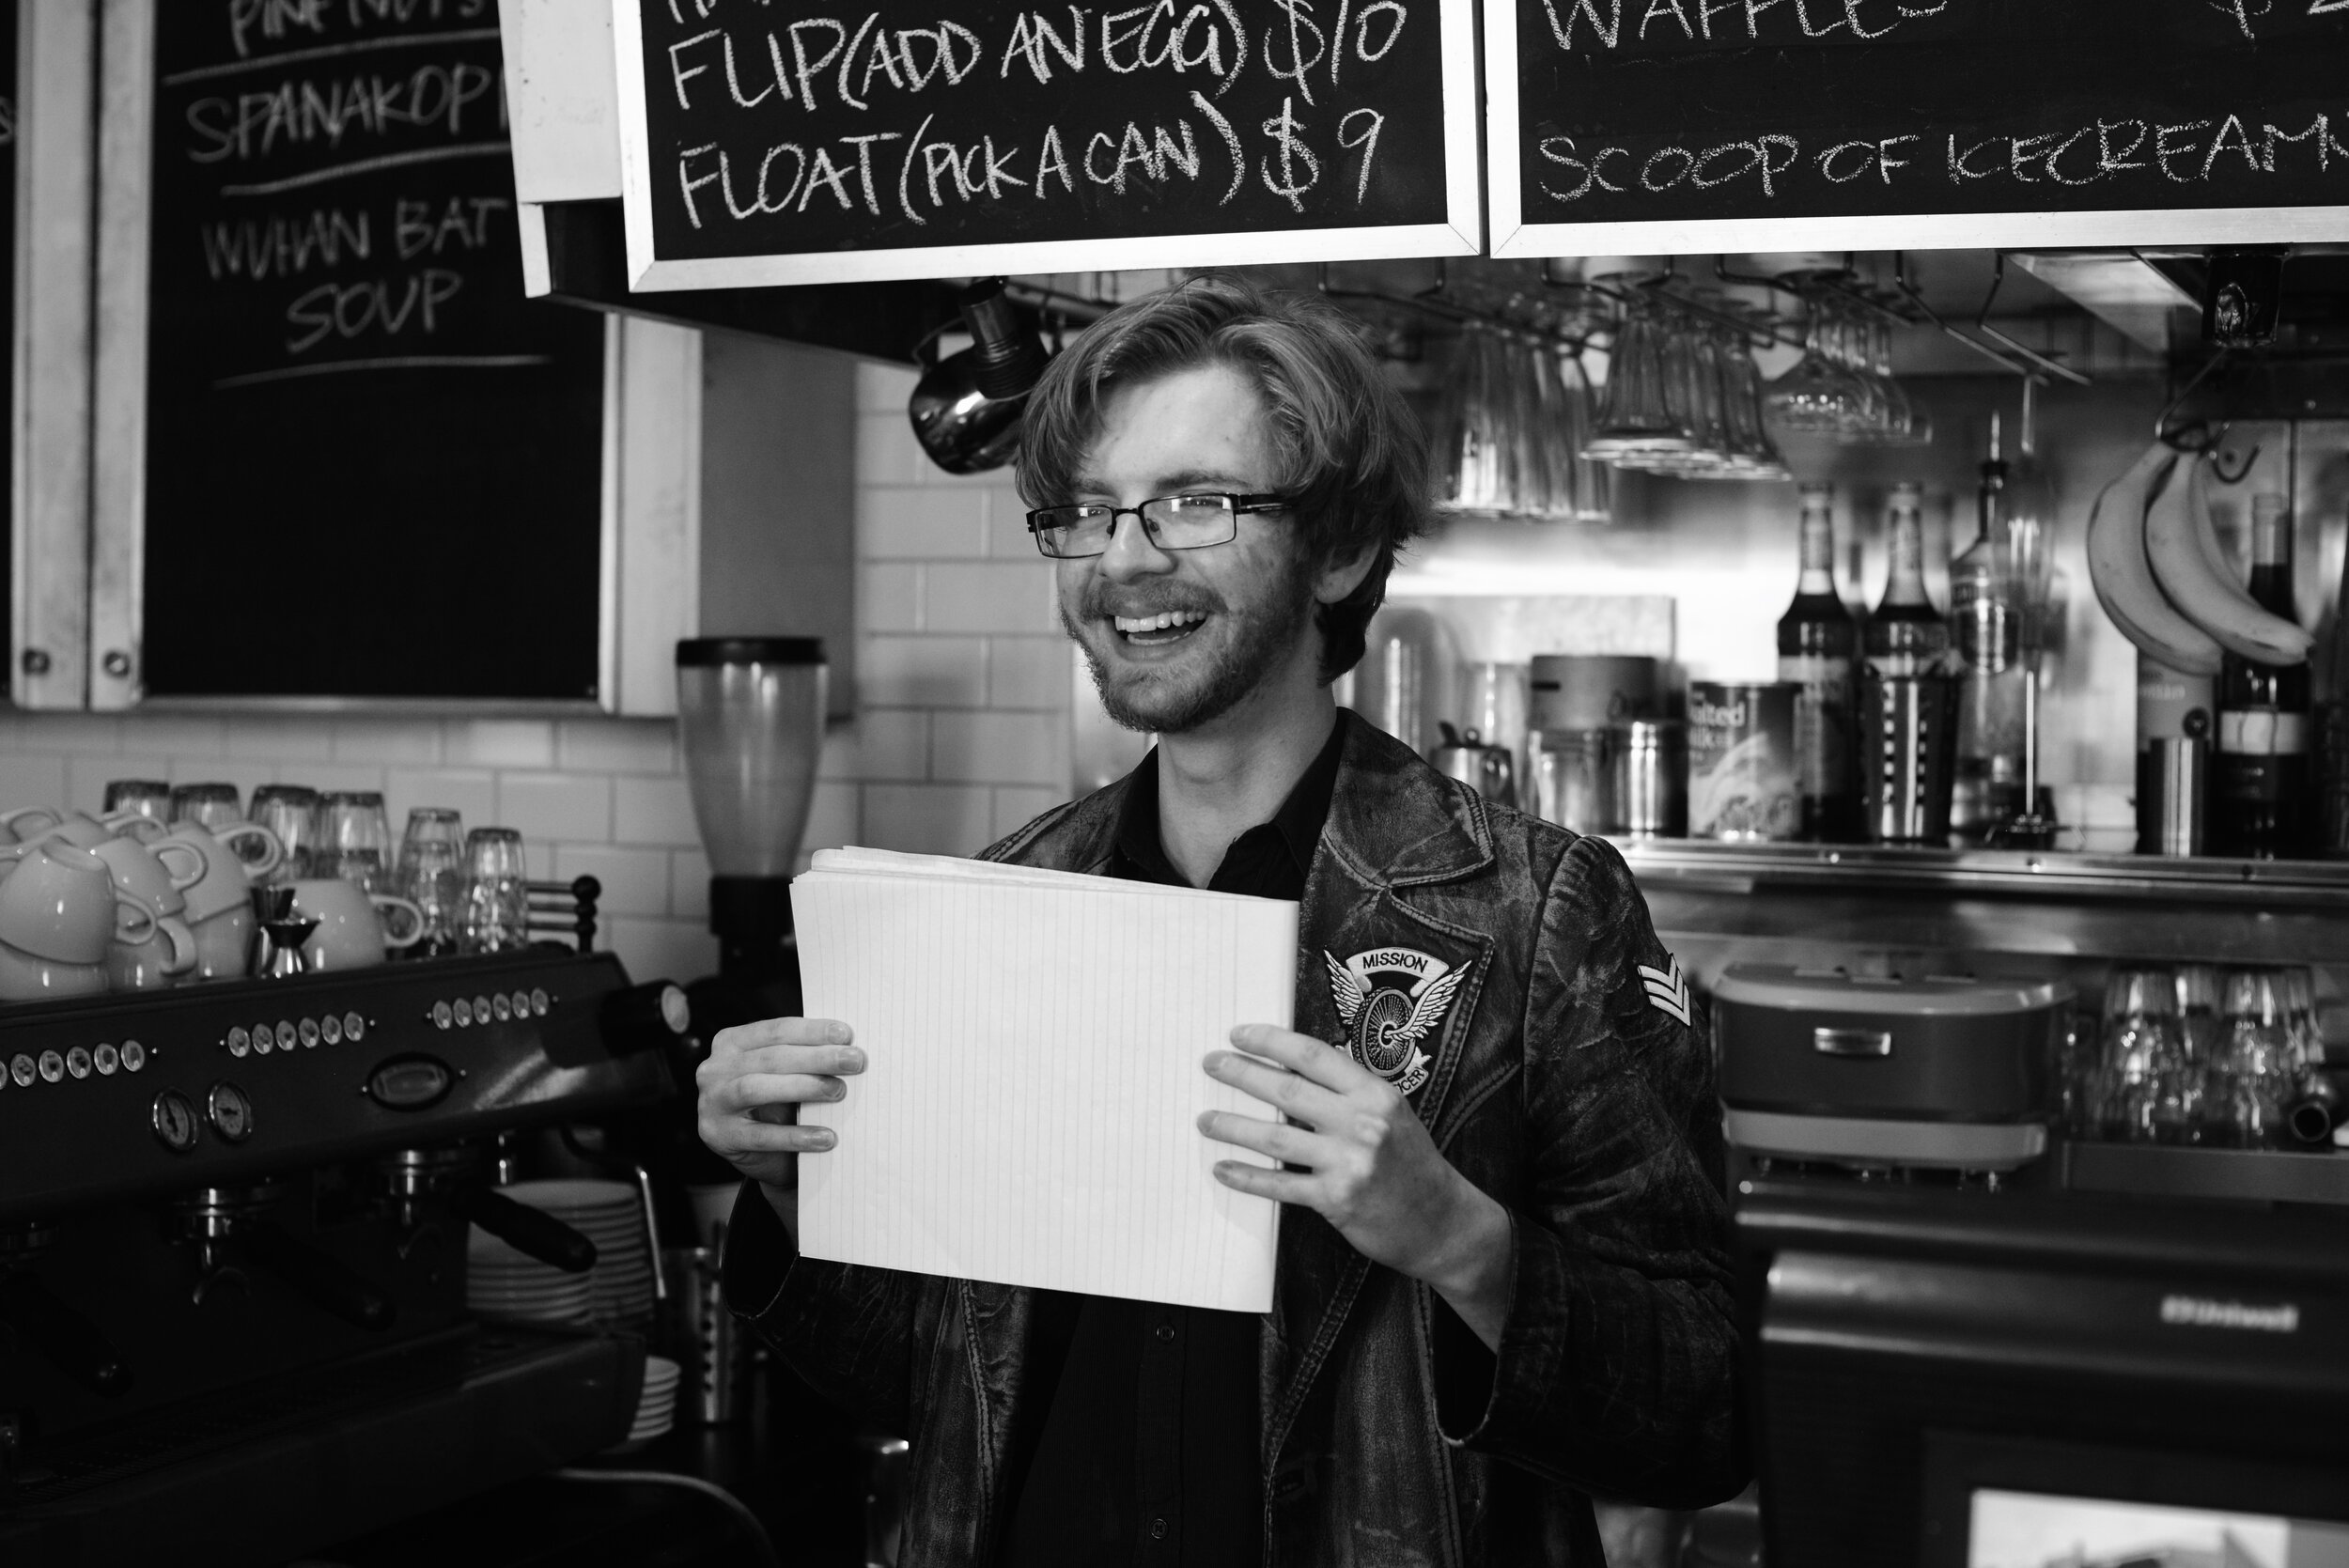 PINE NUTS
SPANAKOPI
WUHAN BAT
SOUP
FLIP (ADD AN EGG) $10
FLOAT (PICK A CAN) $9
WAFFLES
SCOOP OF ICECREAM
MISSION
ICER
Uniwell